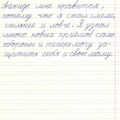 Айкидо мне нравится,
потому что я стал смелее,
сильнее и ловче. Я узнал
много новых приёмов само-
обороны и теперь могу за-
щитить себя и свою маму.